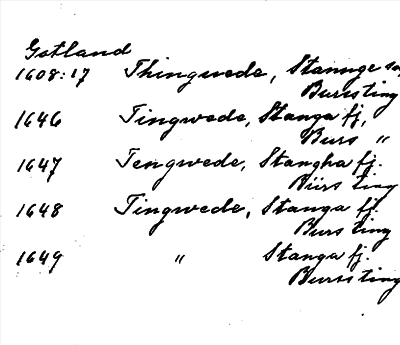 Gotland
1608:17 Thingwede, Stannge so
Burssting
1646 Tingwede, Stanga fj,
Burs "
1647 Tengwede, Stangha fj.
Bürs ting
1648 Tingwede, Stanga fj.
Burs ting
1649 " Stanga fj.
Burssting